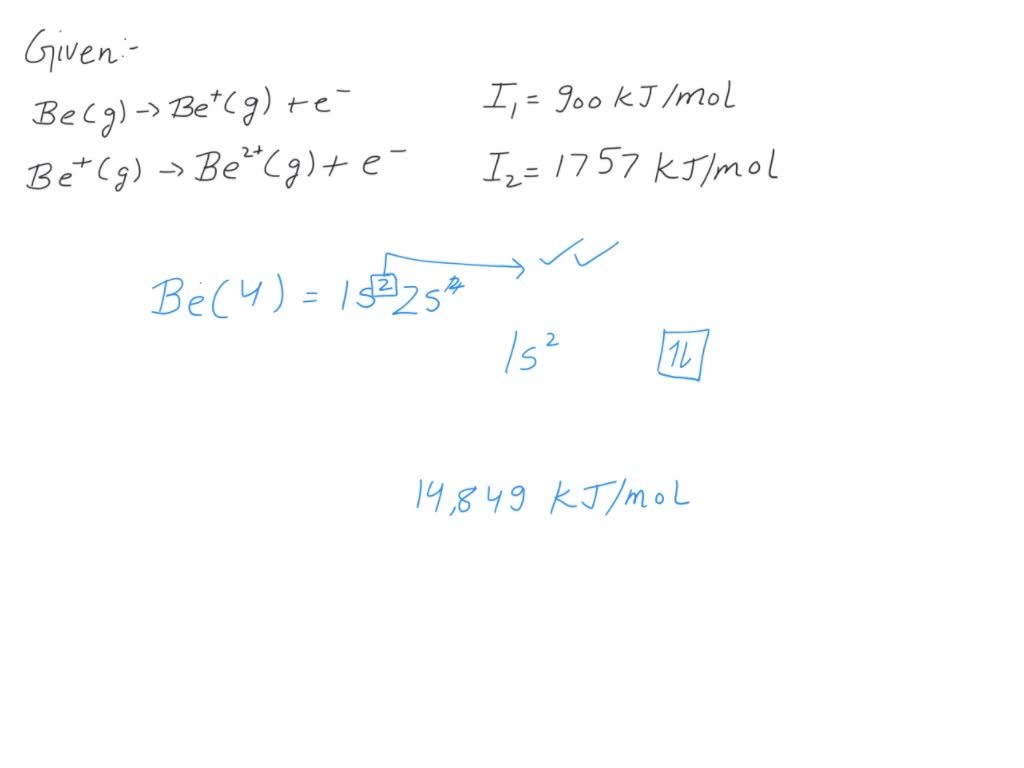 Given:-
Be(g) -> Be⁺(g) + e⁻ I₁ = 900 KJ/mol
Be⁺(g) -> Be²⁺(g) + e⁻ I₂ = 1757 KJ/mol
Be(4) = 1s²2s² ✓✓
1s² 1L
14,849 KJ/mol